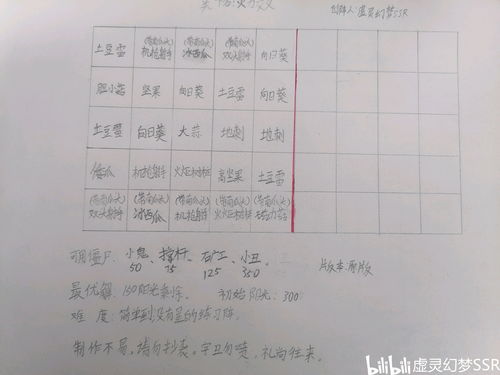 创作人:虚灵幻梦SSR
土豆雷 (带南瓜头)机枪射手 (带南瓜头)冰西瓜 (带南瓜头)双头射手 向日葵
胆小菇 坚果 向日葵 土豆雷 向日葵
土豆雷 向日葵 大蒜 地刺 地刺
倭瓜 机枪射手 火炬树桩 高坚果 土豆雷
(带南瓜头)双头射手 (带南瓜头)冰西瓜 (带南瓜头)机枪射手 (带南瓜头)火炬树桩 (带南瓜头)
可用僵尸:小鬼、撑杆、矿工、小丑。
50 75 125 350
版本:原版
最优解:150阳光剩余。 初始阳光:300
难度:简单到没有星的练习阵。
制作不易,请勿抄袭。字丑勿喷,礼尚往来。
bilibili 虚灵幻梦SSR